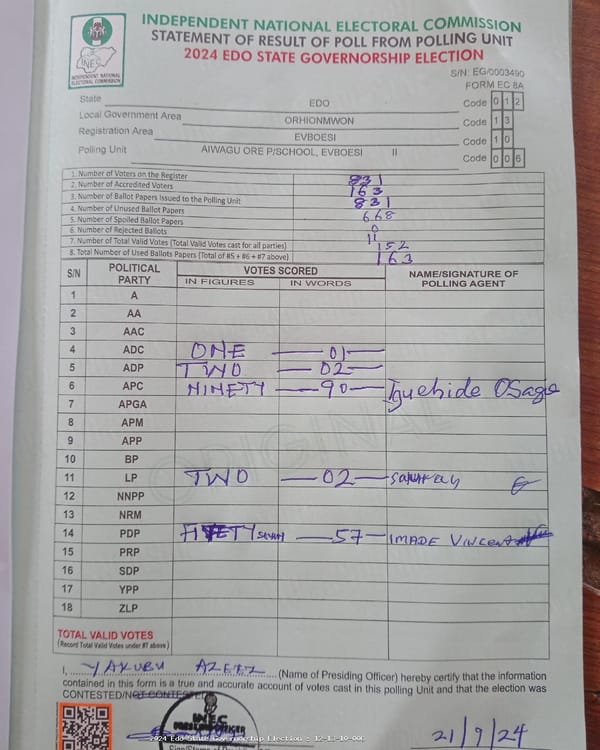 INDEPENDENT NATIONAL ELECTORAL COMMISSION
STATEMENT OF RESULT OF POLL FROM POLLING UNIT
2024 EDO STATE GOVERNORSHIP ELECTION
INEC
INDEPENDENT NATIONAL ELECTORAL COMMISSION
S/N: EG/0003490
FORM EC 8A
State EDO Code 0 1 2
Local Government Area ORHIONMWON Code 1 3
Registration Area EVBOESI Code 1 0
Polling Unit AIWAGU ORE P/SCHOOL, EVBOESI II Code 0 0 6
1. Number of Voters on the Register 831
2. Number of Accredited Voters 163
3. Number of Ballot Papers Issued to the Polling Unit 831
4. Number of Unused Ballot Papers 668
5. Number of Spoiled Ballot Papers 0
6. Number of Rejected Ballots 11
7. Number of Total Valid Votes (Total Valid Votes cast for all parties) 152
8. Total Number of Used Ballots Papers (Total of #5 + #6 + #7 above) 163
S/N POLITICAL PARTY VOTES SCORED NAME/SIGNATURE OF POLLING AGENT
IN FIGURES IN WORDS
1 A
2 AA
3 AAC
4 ADC ONE 01
5 ADP TWO 02
6 APC NINETY 90 Iguehide OSago
7 APGA
8 APM
9 APP
10 BP
11 LP TWO 02
12 NNPP
13 NRM
14 PDP 57 IMADE VINCENT
15 PRP
16 SDP
17 YPP
18 ZLP
ORIGINAL
TOTAL VALID VOTES
(Record Total Valid Votes under #7 above)
I, YAKUBU AZEEZ (Name of Presiding Officer) hereby certify that the information
contained in this form is a true and accurate account of votes cast in this polling Unit and that the election was
CONTESTED/NOT CONTESTED
INEC
PRESIDING OFFICER
21/9/24
2024 Edo State Governorship Election - 12-13-10-006